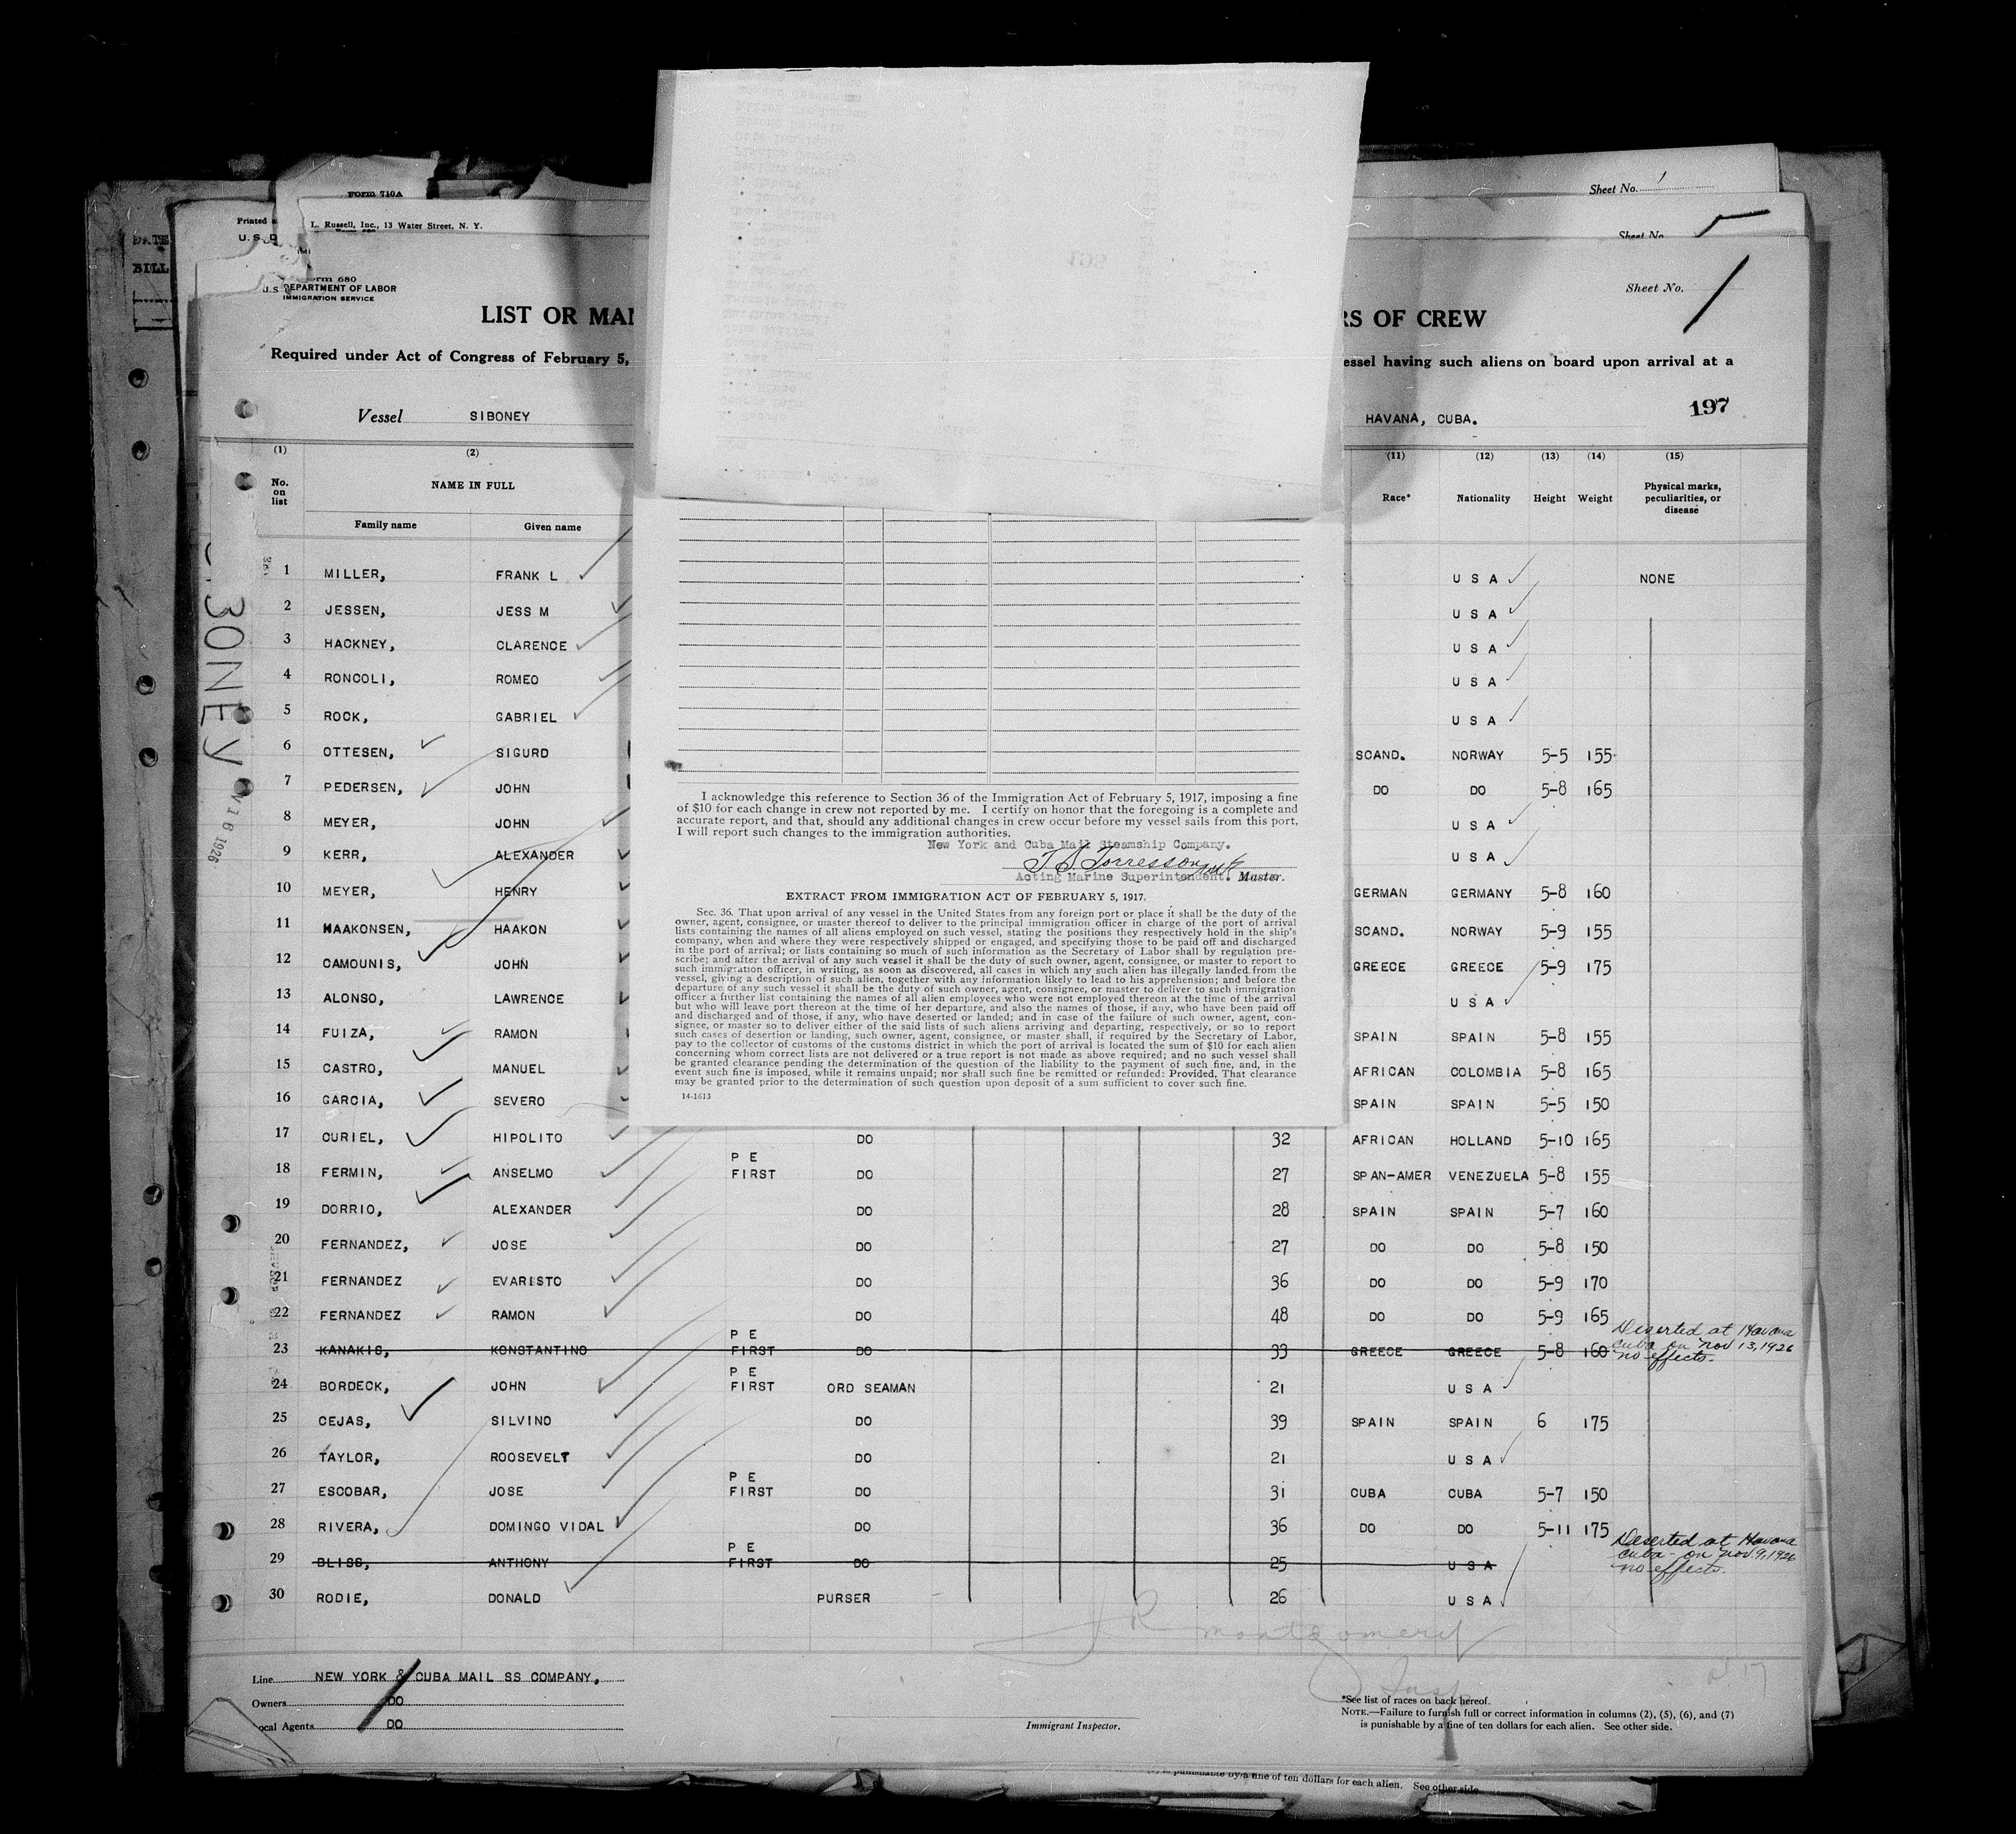 Form 710A
Sheet No. 1
Printed
L. Russell, Inc., 13 Water Street, N. Y.
U. S. D
Sheet No. 5
DATE
BILL
Form 680
U. S. DEPARTMENT OF LABOR
IMMIGRATION SERVICE
Sheet No. 1
LIST OR MAN
RS OF CREW
Required under Act of Congress of February 5,
essel having such aliens on board upon arrival at a
Vessel SIBONEY
HAVANA, CUBA.
197
(1) (2) (11) (12) (13) (14) (15)
No. on list NAME IN FULL Race* Nationality Height Weight Physical marks, peculiarities, or disease
Family name Given name
1 MILLER, FRANK L U S A NONE
2 JESSEN, JESS M U S A
3 HACKNEY, CLARENCE U S A
4 RONCOLI, ROMEO U S A
5 ROCK, GABRIEL U S A
6 OTTESEN, SIGURD SCAND. NORWAY 5-5 155
7 PEDERSEN, JOHN DO DO 5-8 165
8 MEYER, JOHN U S A
9 KERR, ALEXANDER U S A
10 MEYER, HENRY GERMAN GERMANY 5-8 160
11 HAAKONSEN, HAAKON SCAND. NORWAY 5-9 155
12 CAMOUNIS, JOHN GREECE GREECE 5-9 175
13 ALONSO, LAWRENCE U S A
14 FUIZA, RAMON SPAIN SPAIN 5-8 155
15 CASTRO, MANUEL AFRICAN COLOMBIA 5-8 165
16 GARCIA, SEVERO SPAIN SPAIN 5-5 150
17 CURIEL, HIPOLITO DO 32 AFRICAN HOLLAND 5-10 165
18 FERMIN, ANSELMO P E FIRST DO 27 SPAN-AMER VENEZUELA 5-8 155
19 DORRIO, ALEXANDER DO 28 SPAIN SPAIN 5-7 160
20 FERNANDEZ, JOSE DO 27 DO DO 5-8 150
21 FERNANDEZ EVARISTO DO 36 DO DO 5-9 170
22 FERNANDEZ RAMON DO 48 DO DO 5-9 165
23 KANAKIS, KONSTANTINO P E FIRST DO 33 GREECE GREECE 5-8 160 Deserted at Havana
Cuba on Nov 13, 1926
no effects.
24 BORDECK, JOHN P E FIRST ORD SEAMAN 21 U S A
25 CEJAS, SILVINO DO 39 SPAIN SPAIN 6 175
26 TAYLOR, ROOSEVELT DO 21 U S A
27 ESCOBAR, JOSE P E FIRST DO 31 CUBA CUBA 5-7 150
28 RIVERA, DOMINGO VIDAL DO 36 DO DO 5-11 175
29 BLISS, ANTHONY P E FIRST DO 25 U S A Deserted at Havana
Cuba on Nov. 9, 1926
no effects.
30 RODIE, DONALD PURSER 26 U S A
J R Montgomery
Insp
Line NEW YORK & CUBA MAIL SS COMPANY,
Owners DO
ocal Agents DO
Immigrant Inspector.
*See list of races on back hereof.
NOTE.—Failure to furnish full or correct information in columns (2), (5), (6), and (7)
is punishable by a fine of ten dollars for each alien. See other side.
I acknowledge this reference to Section 36 of the Immigration Act of February 5, 1917, imposing a fine
of $10 for each change in crew not reported by me. I certify on honor that the foregoing is a complete and
accurate report, and that, should any additional changes in crew occur before my vessel sails from this port,
I will report such changes to the immigration authorities.
New York and Cuba Mail Steamship Company.
T. S. Torresson
Acting Marine Superintendent. Master.
EXTRACT FROM IMMIGRATION ACT OF FEBRUARY 5, 1917.
Sec. 36. That upon arrival of any vessel in the United States from any foreign port or place it shall be the duty of the
owner, agent, consignee, or master thereof to deliver to the principal immigration officer in charge of the port of arrival
lists containing the names of all aliens employed on such vessel, stating the positions they respectively hold in the ship's
company, when and where they were respectively shipped or engaged, and specifying those to be paid off and discharged
in the port of arrival; or lists containing so much of such information as the Secretary of Labor shall by regulation pre-
scribe; and after the arrival of any such vessel it shall be the duty of such owner, agent, consignee, or master to report to
such immigration officer, in writing, as soon as discovered, all cases in which any such alien has illegally landed from the
vessel, giving a description of such alien, together with any information likely to lead to his apprehension; and before the
departure of any such vessel it shall be the duty of such owner, agent, consignee, or master to deliver to such immigration
officer a further list containing the names of all alien employees who were not employed thereon at the time of the arrival
but who will leave port thereon at the time of her departure, and also the names of those, if any, who have been paid off
and discharged and of those, if any, who have deserted or landed; and in case of the failure of such owner, agent, con-
signee, or master so to deliver either of the said lists of such aliens arriving and departing, respectively, or so to report
such cases of desertion or landing, such owner, agent, consignee, or master shall, if required by the Secretary of Labor,
pay to the collector of customs of the customs district in which the port of arrival is located the sum of $10 for each alien
concerning whom correct lists are not delivered or a true report is not made as above required; and no such vessel shall
be granted clearance pending the determination of the question of the liability to the payment of such fine, and, in the
event such fine is imposed, while it remains unpaid; nor shall such fine be remitted or refunded: Provided, That clearance
may be granted prior to the determination of such question upon deposit of a sum sufficient to cover such fine.
14-1613
is punishable by a fine of ten dollars for each alien. See other side.